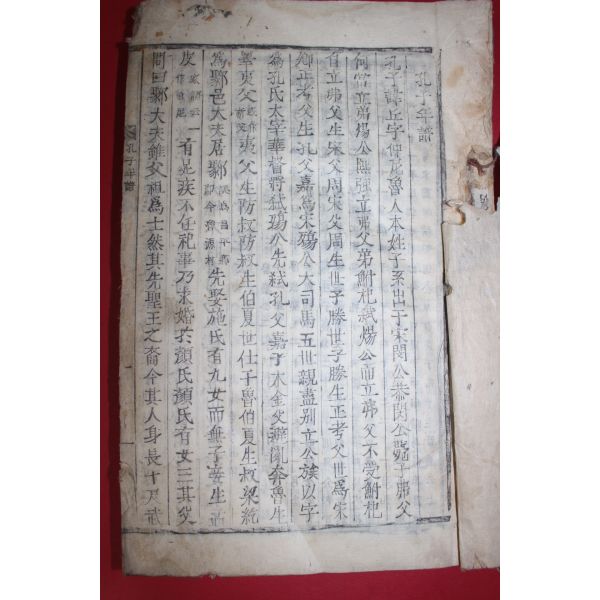 孔子年譜
孔子諱丘字仲尼魯人本姓子系出于宋閔公恭閔公嫡子弗父
何當立弟煬公熙強立弗父弟鮒杞弑煬公而立弗父不受鮒杞
自立弗父生宋父周宋父周生世子勝世子勝生正考父世爲宋
卿正考父生孔父嘉爲宋殤公大司馬五世親盡别立公族以字
爲孔氏太宰華督將弑殤公先弑孔父嘉子木金父避亂奔魯生
睪夷父夷父生防叔防叔生伯夏世仕于魯伯夏生叔梁紇
爲鄹邑大夫居鄹先娶施氏有九女而無子妾生孟
皮一有足疾不任祀事乃求婚於顔氏顔氏有女三其父
問曰鄹大夫雖父祖爲士然其先聖王之裔今其人身長十尺武
孔子年譜